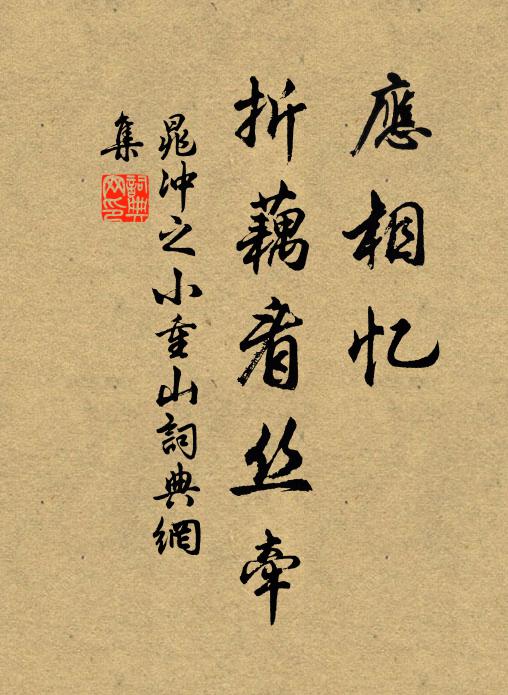 應相忆
折藕看丝牽
晁沖之小重山詞典網
集
詞典网印